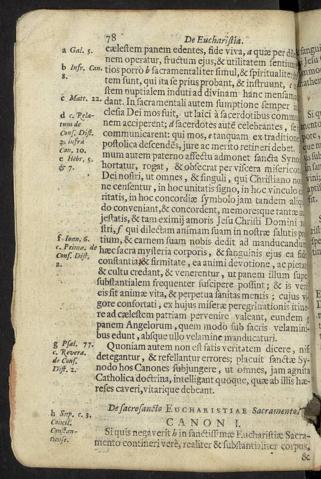 78 De Eucharistia.
a Gal. 5. cælestem panem edentes, fide viva, a quæ per di-
nem operatur, fructum ejus, & utilitatem sentiun
b Infr. Can. 8. tios porrò b sacramentaliter simul, & spiritualiter;
tem sunt, qui ita se prius probant, & instruunt,
stem nuptialem induti ad divinam hanc mensam
c Matt. 22. dant. In sacramentali autem sumptione semper
d c. Pela- clesia Dei mos fuit, ut laici à sacerdotibus commu
tum de nem acciperent; sacerdotes autē celebrantes,
Cons. Dist. communicarent: qui mos, tanquam ex tradition
2. infrà postolica descendēs, jure ac merito retineri debet.
Can. 10. mum autem paterno affectu admonet sancta Sym
e Hebr. 5. hortatur, rogat, & obsecrat per viscera misericor
& 7. Dei nostri, ut omnes, & singuli, qui Christiano no
ne censentur, in hoc unitatis signo, in hoc vinculo
ritatis, in hoc concordiæ symbolo jam tandem aliqu
do conveniant, & concordent, memoresque tantæ
jestatis, & tam eximij amoris Jesu Christi Domini
stri, f qui dilectam animam suam in nostræ salutis
f Ioan. 6. tium, & carnem suam nobis dedit ad manducandum
c. Prima. de hæc sacra mysteria corporis, & sanguinis ejus ea fide
Cons. Dist. constantia & firmitate, ea animi devotione, ac pietate
2. & cultu credant, & venerentur, ut panem illum supe
substantialem frequenter suscipere possint; & is ver
eis sit animæ vita, & perpetua sanitas mentis; cujus vi
gore confortati, ex hujus miseræ peregrinationis itine
re ad cælestem patriam pervenire valeant, eundem
panem Angelorum, quem modò sub sacris velamin-
bus edunt, absque ullo velamine manducaturi.
g Psal. 77. Quoniam autem non est satis veritatem dicere, nisi
c. Revera. detegantur, & refellantur errores; placuit sanctæ Sy-
de Cons. nodo hos Canones subjungere, ut omnes, jam agnita
Dist. 2. Catholica doctrina, intelligant quoque, quæ ab illis hæ-
reses caveri, vitarique debeant.
De sacrosancto EUCHARISTIÆ Sacramento.
h Sup. c. 3. CANON I.
Concil. Si quis negaverit h in sanctissimæ Eucharistiæ Sacra-
Constan- mento contineri verè, realiter & substantialiter corpus,
tiense. &